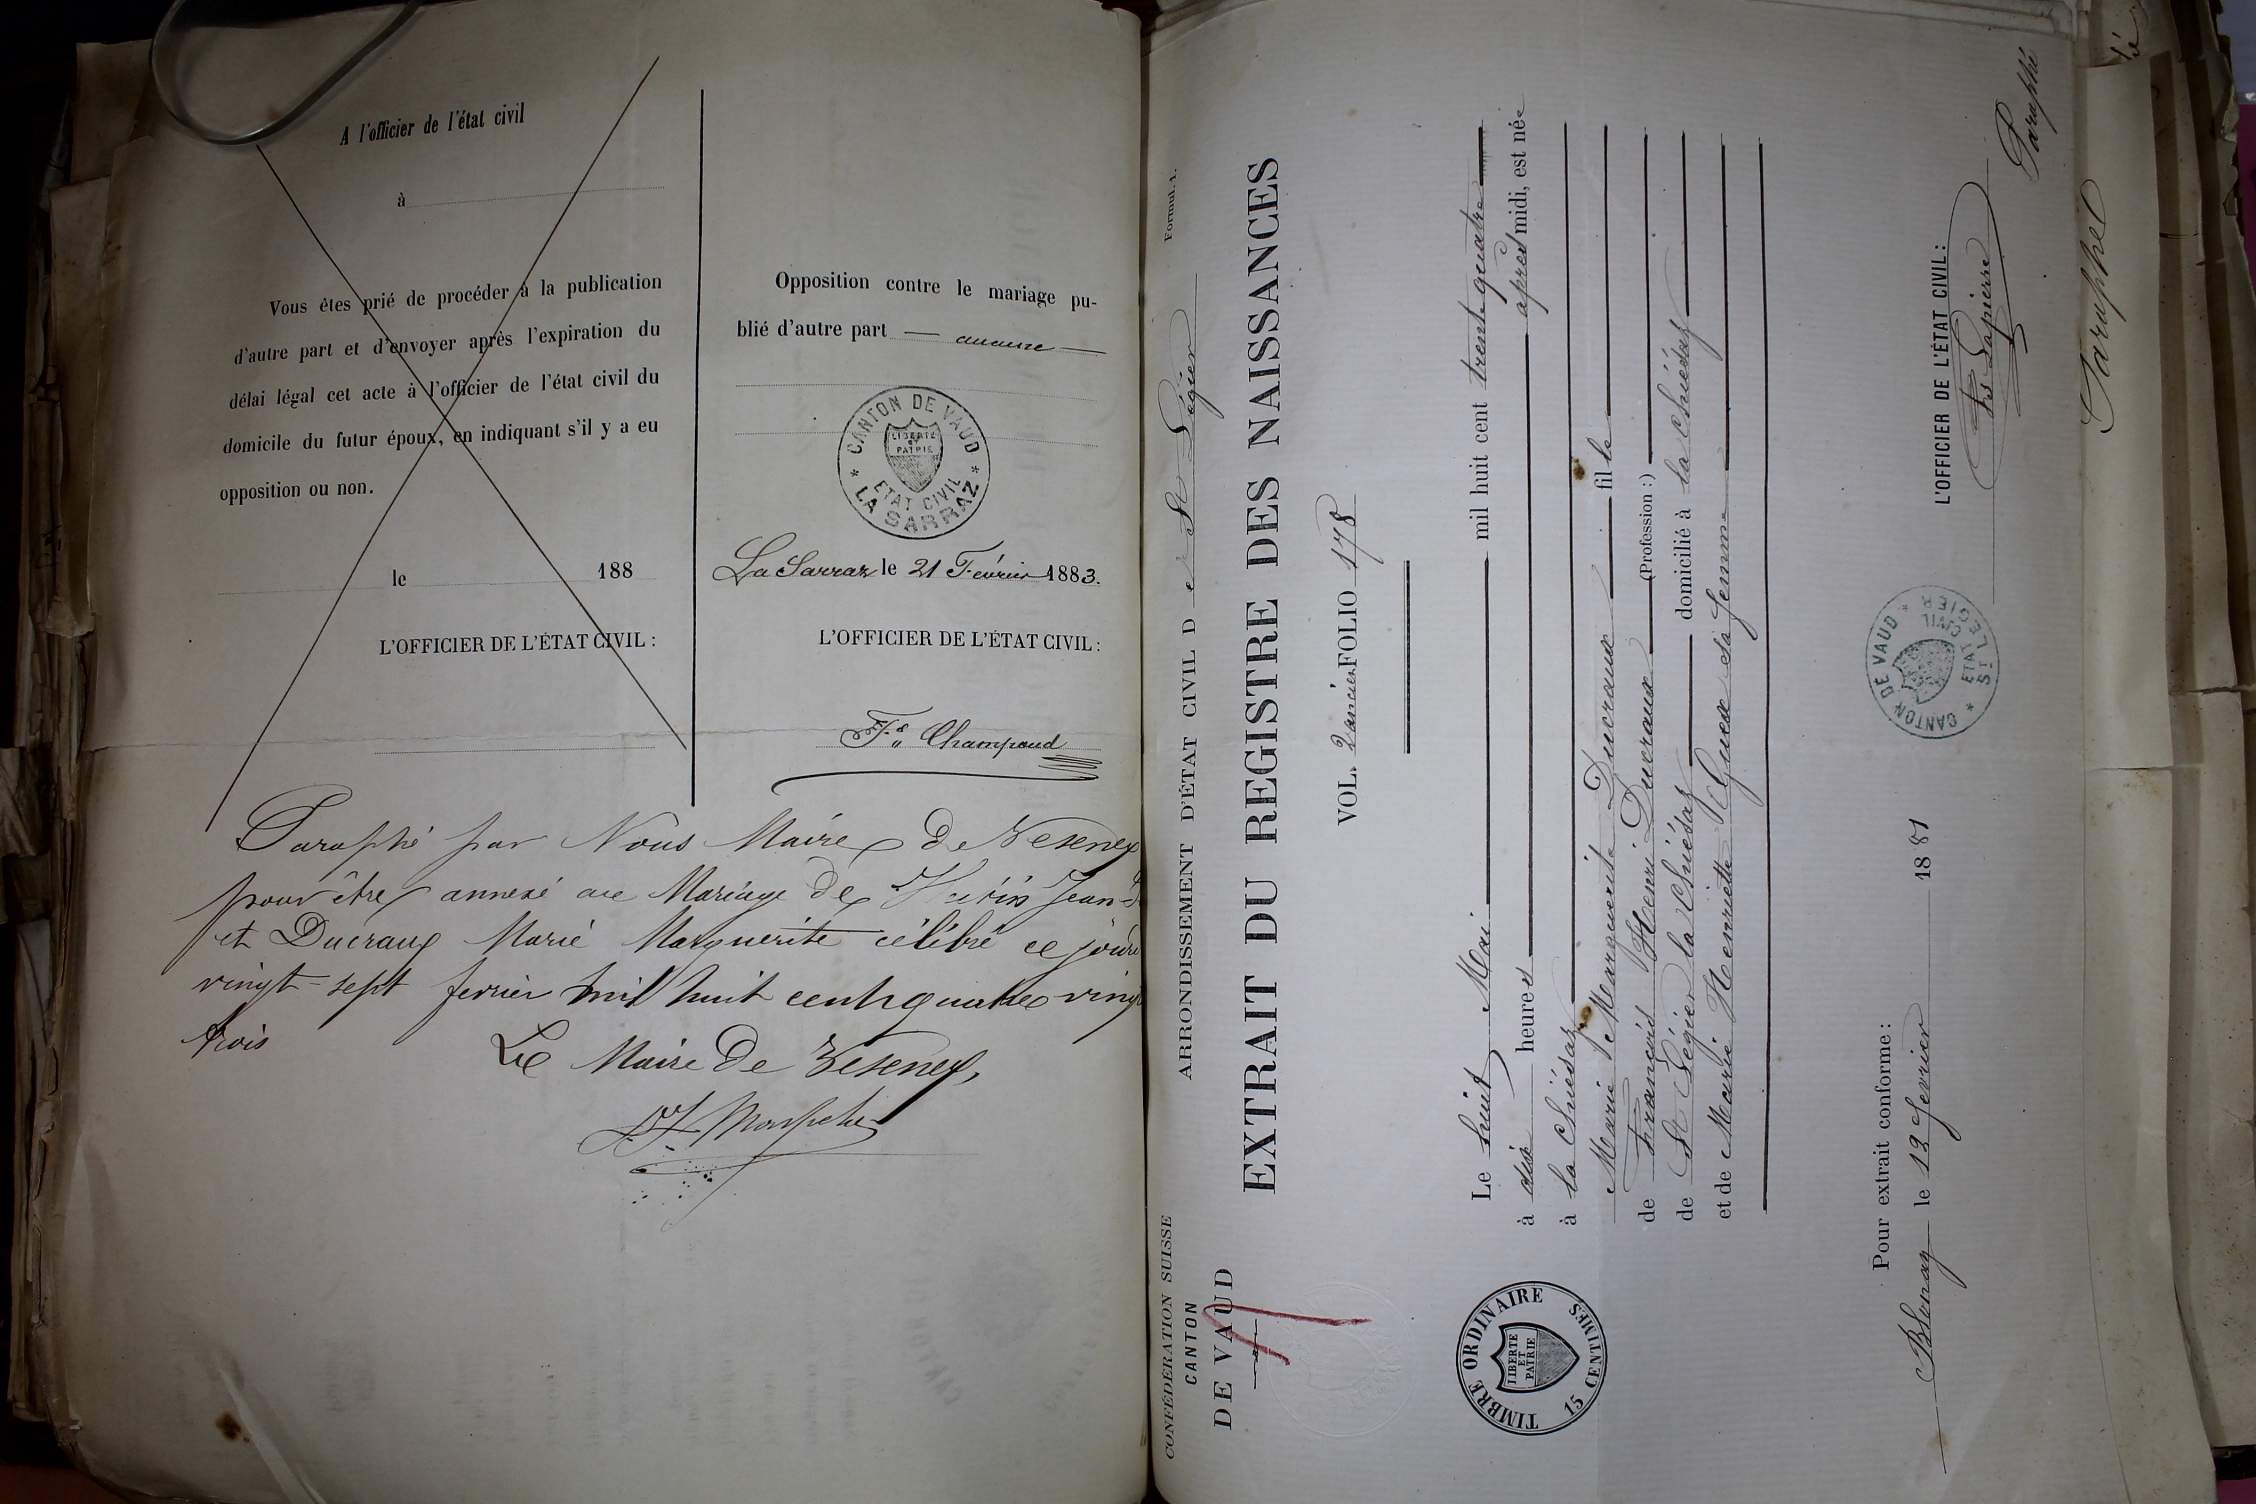 A l'officier de l'état civil
à
Vous êtes prié de procéder à la publication
d'autre part et d'envoyer après l'expiration du
délai légal cet acte à l'officier de l'état civil du
domicile du futur époux, en indiquant s'il y a eu
opposition ou non.
le 188
L'OFFICIER DE L'ÉTAT CIVIL :
Opposition contre le mariage pu-
blié d'autre part — aucune —
CANTON DE VAUD
LIBERTÉ
ET
PATRIE
ETAT CIVIL
LA SARRAZ
La Sarraz le 21 Février 1883.
L'OFFICIER DE L'ÉTAT CIVIL :
Fs Champoud
Paraphé par Nous Maire de Vesenex
pour être annexé au Mariage de Jean
et Ducraux Marie Marguerite célébré ce jour
vingt-sept fevrier mil huit cent quatre vingt
trois
Le Maire De Vesenex,
CONFÉDÉRATION SUISSE
CANTON
DE VAUD
ARRONDISSEMENT D'ÉTAT CIVIL D e St Légier
Formul. 1.
EXTRAIT DU REGISTRE DES NAISSANCES
VOL. 2 ancien FOLIO 178
Le huit Mai mil huit cent trente quatre
à dix heures après midi, est née
à la Chiésaz
Marie Marguerite Ducraux fille
de François Henri Ducraux (Profession :)
de St Légier la Chiésaz domicilié à la Chiésaz
et de Marie Henriette Guex sa femme
TIMBRE ORDINAIRE
LIBERTÉ
ET
PATRIE
15 CENTIMES
Pour extrait conforme :
Blonay le 12 fevrier 1881
CANTON DE VAUD
ETAT
CIVIL
ST LEGIER
L'OFFICIER DE L'ÉTAT CIVIL :
Paraphé